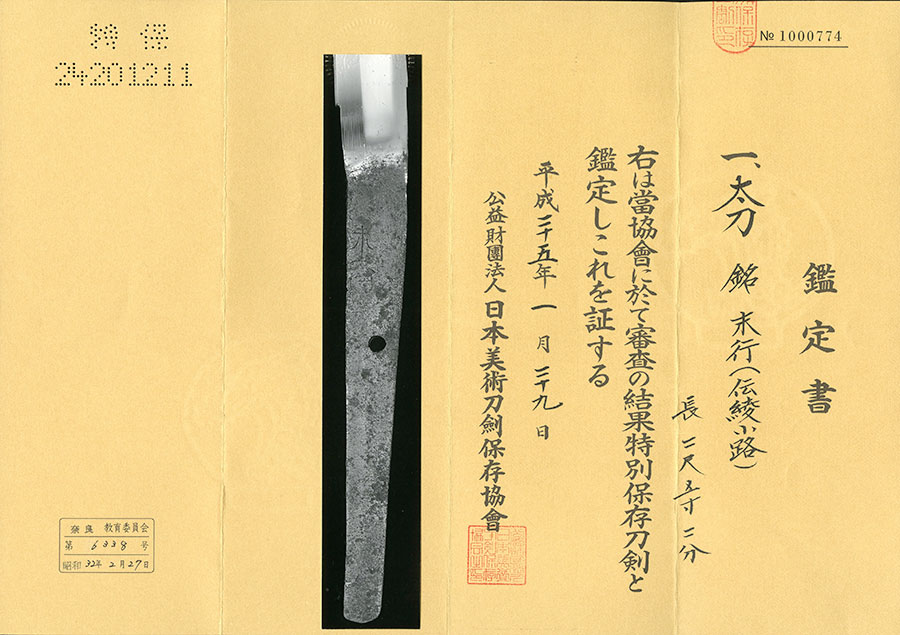 № 1000774
鑑定書
一、太刀 銘 末行(伝綾小路)
長 二尺五寸二分
右は當協會に於て審査の結果特別保存刀剣と
鑑定しこれを証する
平成二十五年一月二十九日
公益財團法人 日本美術刀劍保存協會
特保
24201211
奈良 教育委員会
第 6338 号
昭和 32年 2月27日